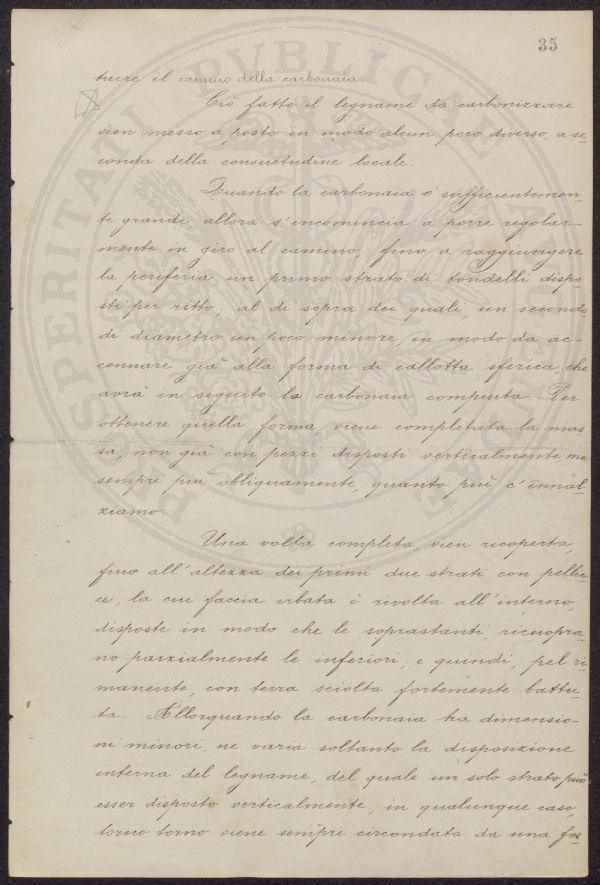 35
tuire il camino della carbonaia.
Ciò fatto il legname da carbonizzare
vien messo a posto in modo alcun poco diverso, a se-
conda della consuetudine locale.
Quando la carbonaia è sufficientemen-
te grande allora s'incomincia a porre regolar-
mente in giro al camino, fino a raggiungere
la periferia, un primo strato di tondelli dispo-
sti per ritto, al di sopra dei quali, un secondo
di diametro un poco minore, in modo da ac-
cennare già alla forma di callotta sferica, che
avrà in seguito la carbonaia compiuta. Per
ottenere quella forma, viene completata la mas-
sa, non già con pezzi disposti verticalmente, ma
sempre più obliquamente, quanto più c'innal-
ziamo.
Una volta completa, vien ricoperta,
fino all'altezza dei primi due strati con pellic-
ce, la cui faccia erbata è rivolta all'interno,
disposte in modo che le soprastanti, ricuopra-
no parzialmente le inferiori, e quindi, pel ri-
manente, con terra sciolta fortemente battu-
ta. Allorquando la carbonaia ha dimensio-
ni minori, ne varia soltanto la disposizione
interna del legname, del quale un solo strato può
esser disposto verticalmente; in qualunque caso,
torno torno viene sempre circondata da una fos-
PROSPERITATI PVBLICAE